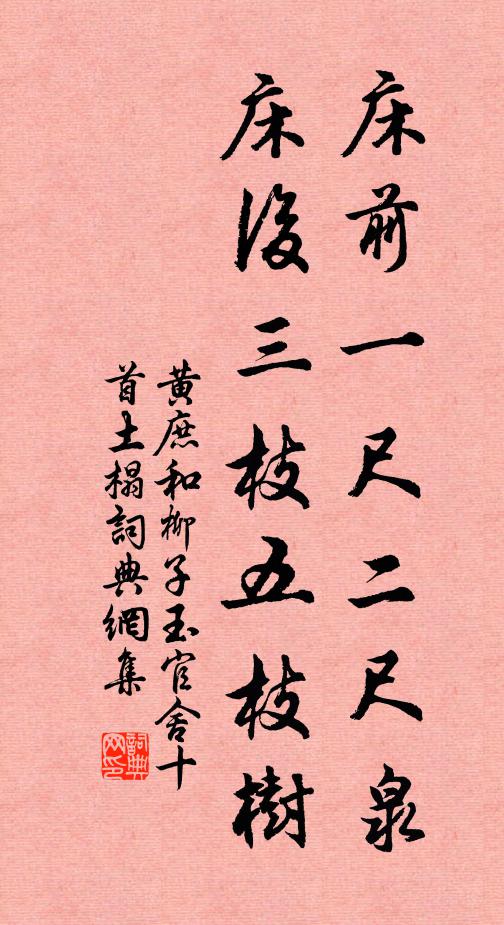 床前一尺二尺泉
床後三枝五枝樹
黃庶和柳子玉官舍十
首土榻詞典網集
詞典
网印